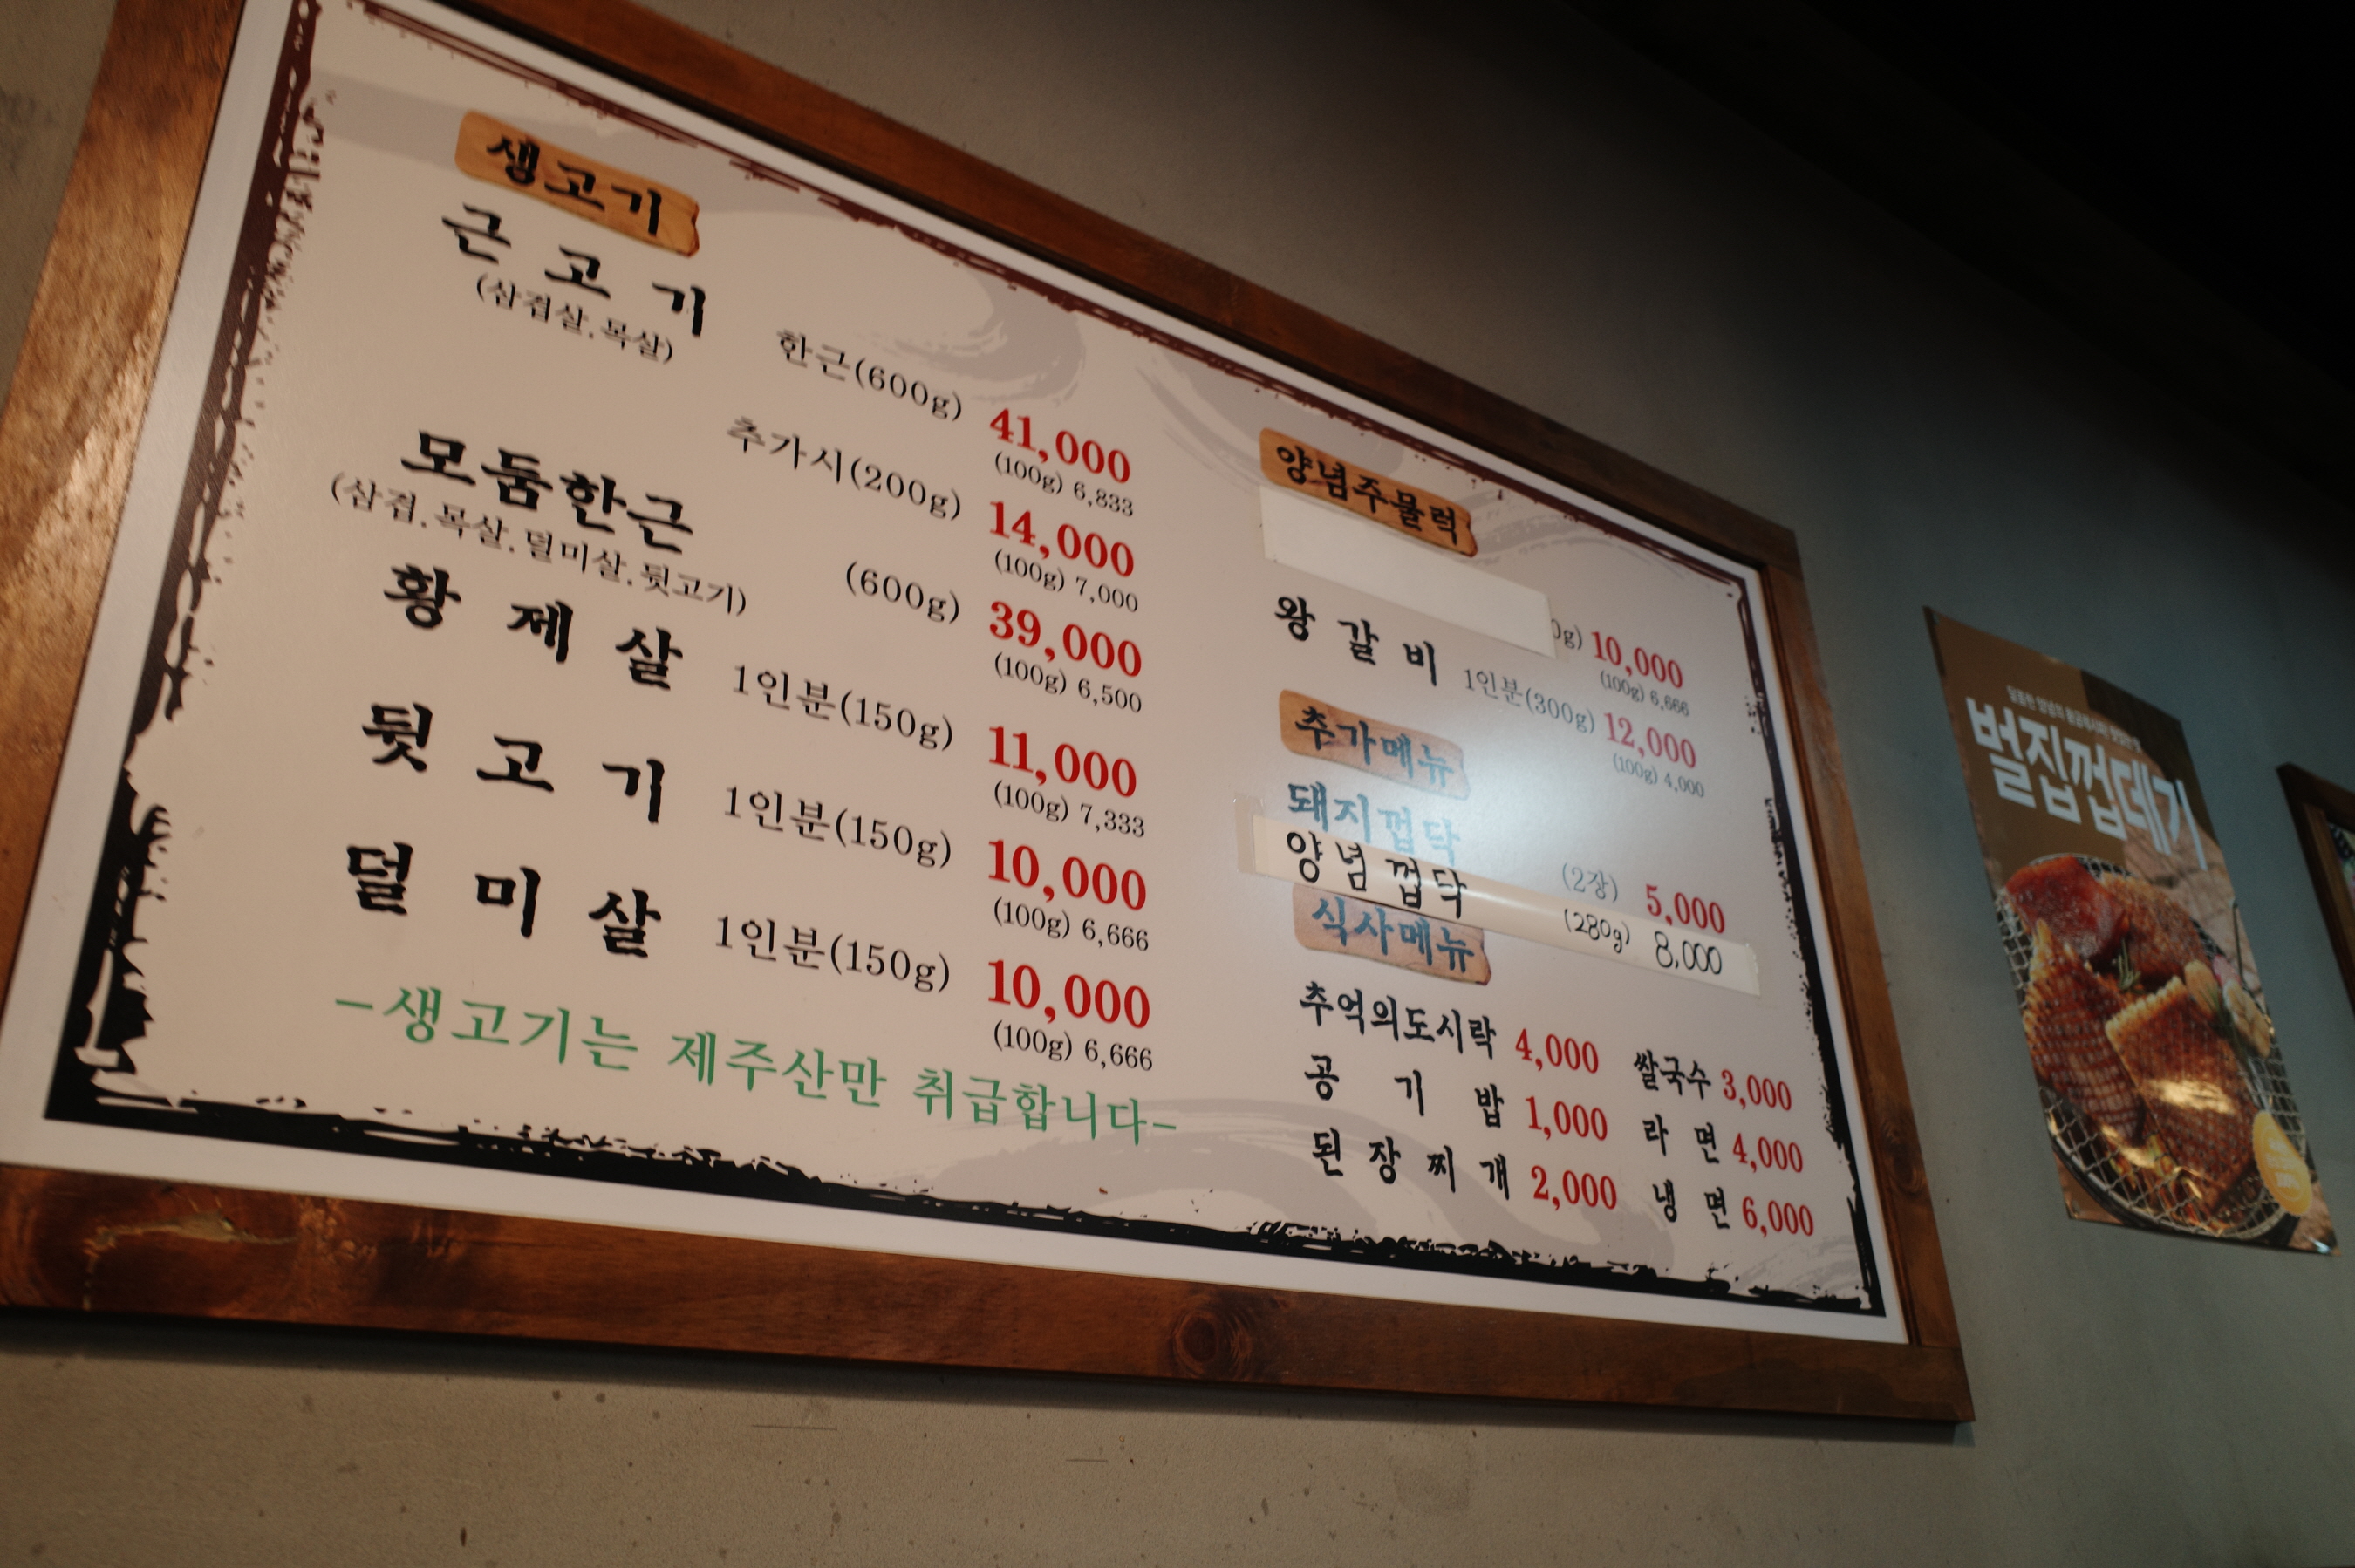 생고기
근 고 기
(삼겹살.목살)
한근(600g) 41,000
(100g) 6,833
추가시(200g) 14,000
(100g) 7,000
모둠한근
(삼겹.목살.덜미살.뒷고기)
(600g) 39,000
(100g) 6,500
황 제 살 1인분(150g) 11,000
(100g) 7,333
뒷 고 기 1인분(150g) 10,000
(100g) 6,666
덜 미 살 1인분(150g) 10,000
(100g) 6,666
-생고기는 제주산만 취급합니다-
양념주물럭
0g) 10,000
(100g) 6,666
왕 갈 비 1인분(300g) 12,000
(100g) 4,000
추가메뉴
돼지껍닥 (2장) 5,000
양념 껍닥 (280g) 8,000
식사메뉴
추억의도시락 4,000 쌀국수 3,000
공 기 밥 1,000 라 면 4,000
된 장 찌 개 2,000 냉 면 6,000
벌집껍데기